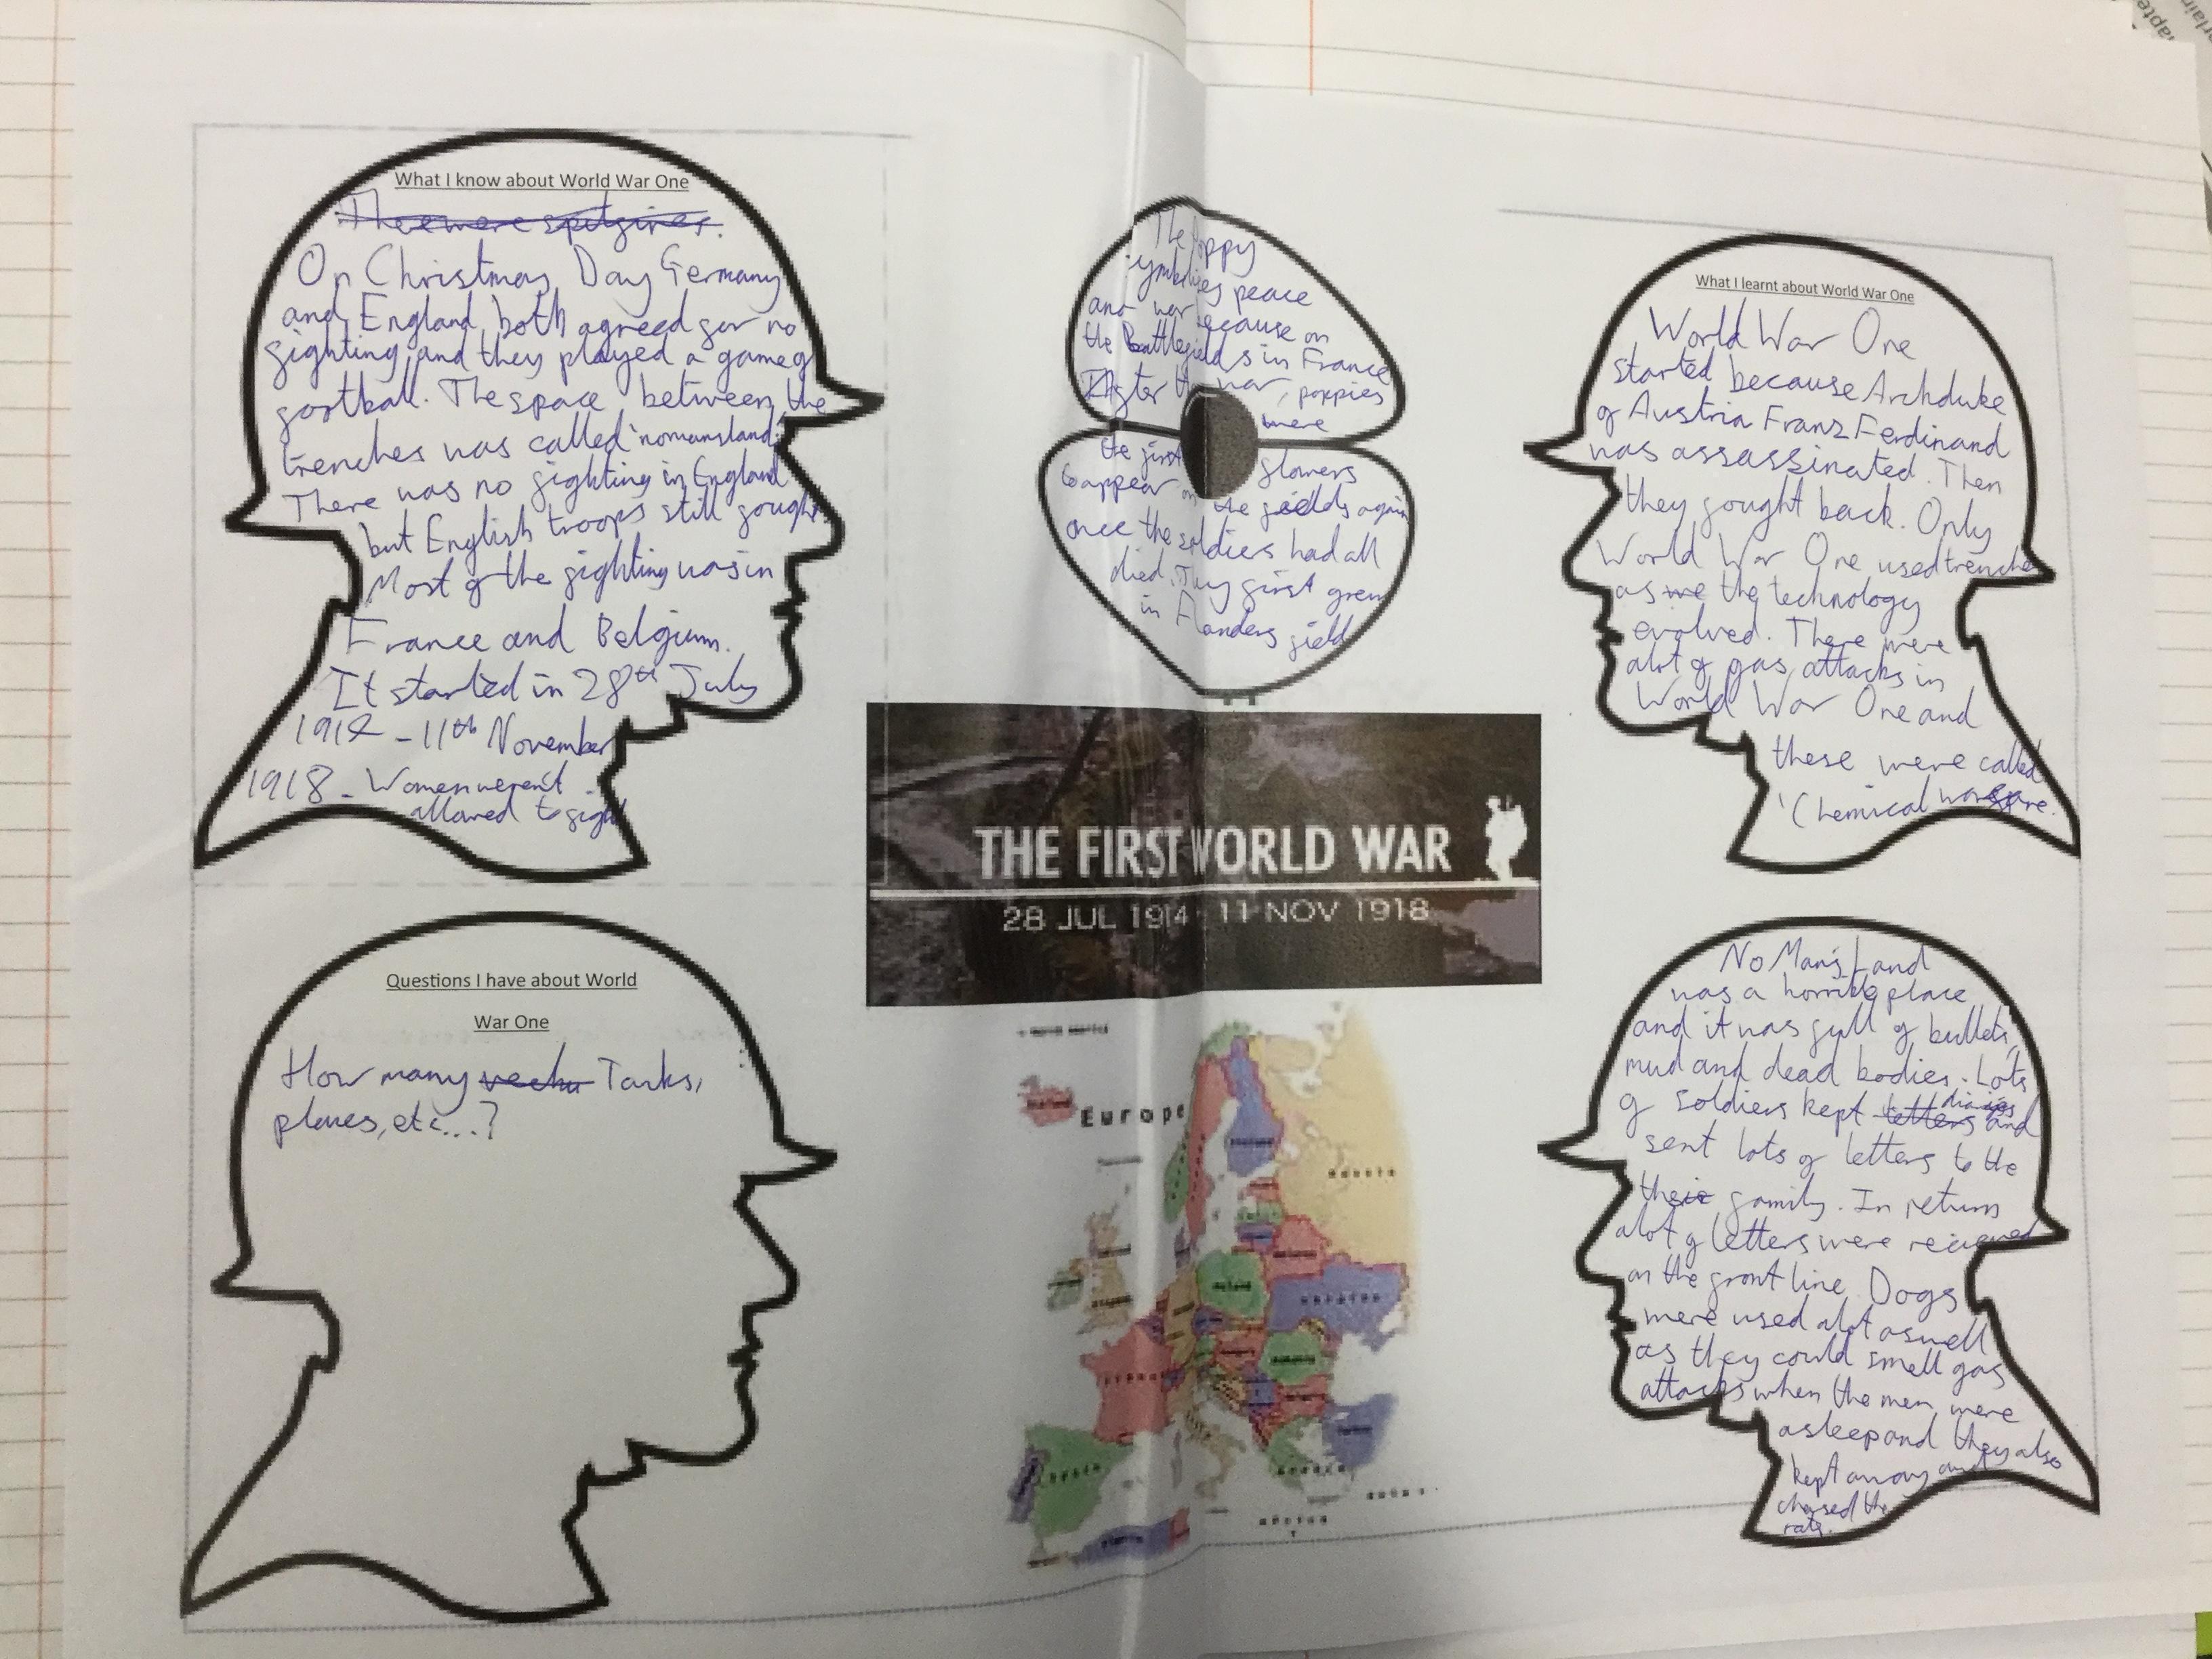 What I know about World War One
There were spitfires.
On Christmas Day Germany
and England both agreed for no
fighting and they played a game of
football. The space between the
trenches was called 'nomansland'.
There was no fighting in England
but English troops still fought
Most of the fighting was in
France and Belgium.
It started in 28th July
1914 - 11th November
1918 - Women weren't
allowed to fight
Questions I have about World
War One
How many Tanks,
planes, etc...?
The Poppy
symbolises peace
and war because on
the Battlefields in France
After the war, poppies
were
the first flowers
to appear on the fields again
once the soldiers had all
died. They first grew
in Flanders field
THE FIRST WORLD WAR
28 JUL 1914 - 11 NOV 1918
Europe
What I learnt about World War One
World War One
started because Archduke
of Austria Franz Ferdinand
was assassinated. Then
they fought back. Only
World War One used trenches
as we the technology
evolved. There were
alot of gas attacks in
World War One and
these were called
'Chemical warfare.
No Man's Land
was a horrible place
and it was full of bullets,
mud and dead bodies. Lots
of soldiers kept letters diaries and
sent lots of letters to the
their family. In return
alot of letters were recieved
on the front line. Dogs
were used alot aswell
as they could smell gas
attacks when the men were
asleep and they also
kept away and
chased the
rats.